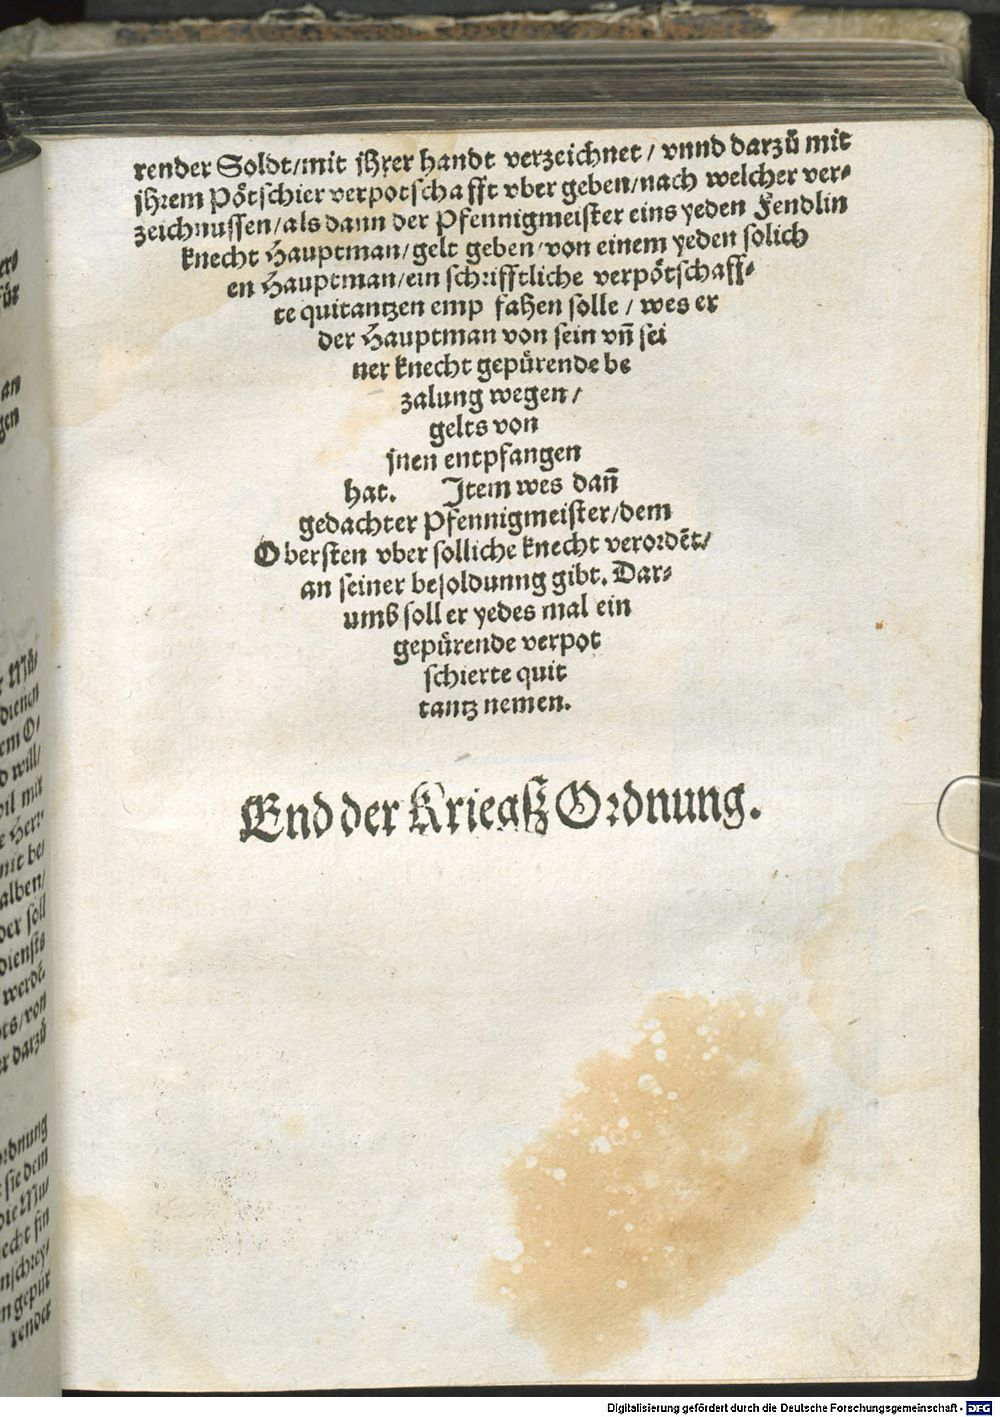 render Soldt/mit jhrer handt verzeichnet / vnnd darzů mit
jhrem Pötschier verpotschafft vber geben/nach welcher ver⸗
zeichnussen/als dann der Pfennigmeister eins yeden Fendlin
knecht Hauptman/gelt geben/von einem yeden solich
en Hauptman/ein schrifftliche verpötschaff⸗
te quitantzen emp fahen solle / wes er
der Hauptman von sein vñ sei
ner knecht gepürende be
zalung wegen /
gelts von
jnen entpfangen
hat. Item wes dañ
gedachter Pfennigmeister/dem
Obersten vber solliche knecht verordēt/
an seiner besoldunng gibt. Dar⸗
umb soll er yedes mal ein
gepürende verpot
schierte quit
tantz nemen.
End der Kriegsz Ordnung.
an
gen
dienen
d will/
nit be/
alben/
der söll
diensts
werdē
er darzů
rdnung
sie dem
render
Digitalisierung gefördert durch die Deutsche Forschungsgemeinschaft - DFG